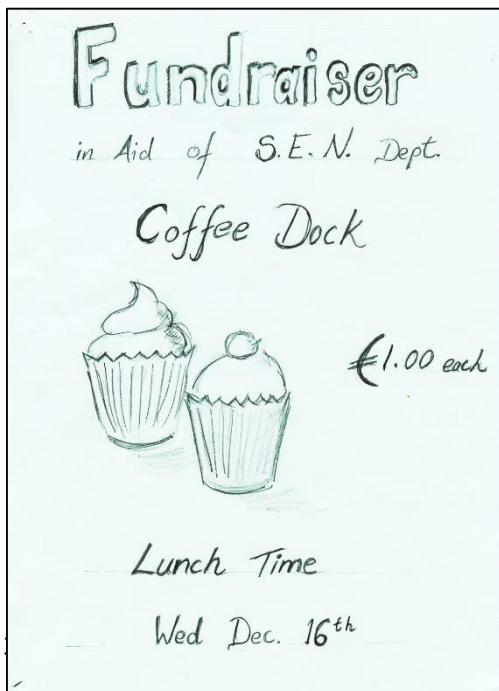 Fundraiser
in Aid of S.E.N. Dept.
Coffee Dock
€1.00 each
Lunch Time
Wed Dec. 16th